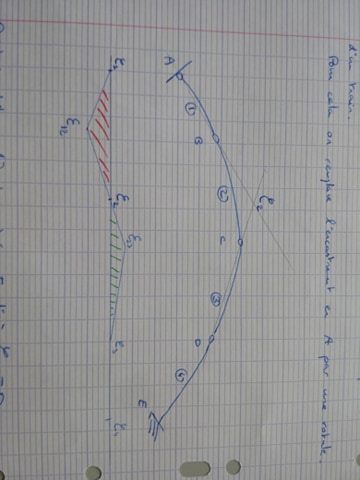 d'un train.
Pour cela on remplace l'encastrement en A par une rotule.
A
①
B
②
P₂
C
③
D
④
E
ξ₁
ξ₁₂
ξ₂
ξ₂₃
ξ₃
ξ₄